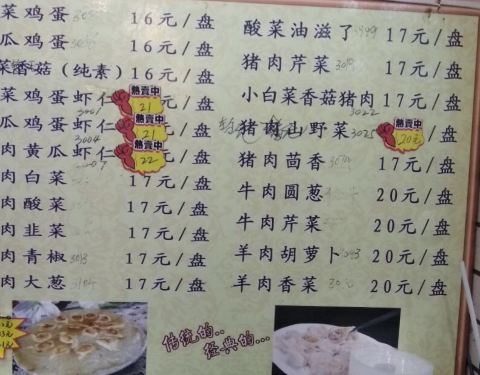 菜鸡蛋 16元/盘
瓜鸡蛋 16元/盘
菜香菇(纯素) 16元/盘
菜鸡蛋虾仁 3001 熱賣中 21 元/盘
瓜鸡蛋虾仁 3004 熱賣中 21 元/盘
肉黄瓜虾仁 熱賣中 22 元/盘
肉白菜 17元/盘
肉酸菜 17元/盘
肉韭菜 17元/盘
肉青椒 3013 17元/盘
肉大葱 3104 17元/盘
酸菜油滋了 17元/盘
猪肉芹菜 17元/盘
小白菜香菇猪肉 3022 17元/盘
猪肉山野菜 3025 熱賣中 20元 /盘
猪肉茴香 17元/盘
牛肉圆葱 20元/盘
牛肉芹菜 20元/盘
羊肉胡萝卜 20元/盘
羊肉香菜 20元/盘
传统的..
经典的...